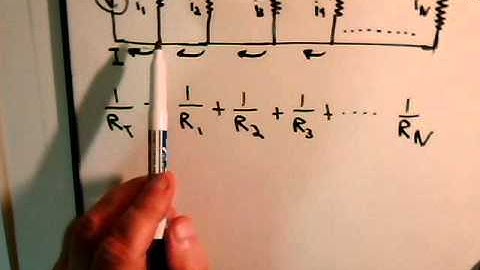 i₁ i₂ i₃ i₄ ......... i_N
I
1/R_T - 1/R₁ + 1/R₂ + 1/R₃ + ..... 1/R_N